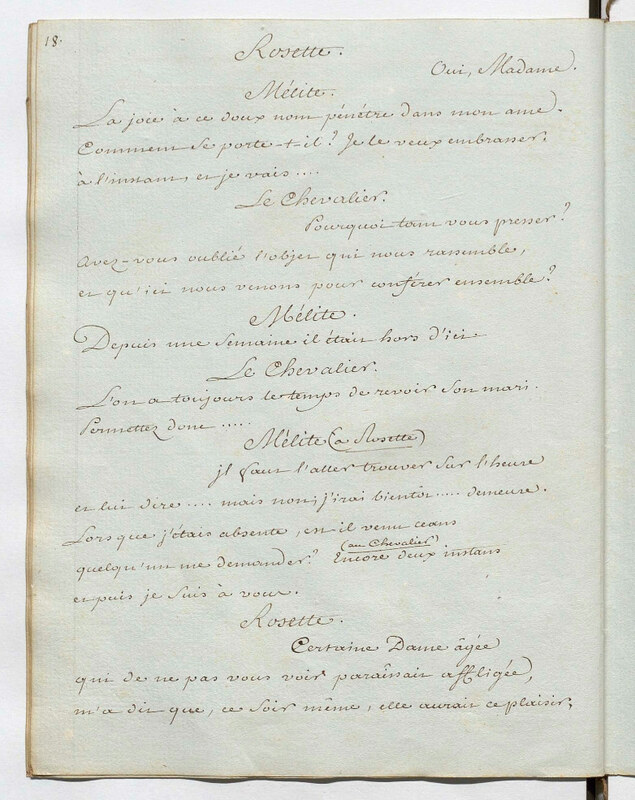 18.
Rosette.
Oui, Madame.
Mélite.
La joie à ce doux nom pénétre dans mon ame.
Comment se porte-t-il? Je le veux embrasser;
à l'instant, et je vais ....
Le Chevalier.
Pourquoi tant vous presser?
Avez-vous oublié l'objet qui nous rassemble,
et qu'ici nous venons pour conférer ensemble?
Mélite.
Depuis une semaine il était hors d'ici
Le Chevalier.
L'on a toujours le temps de revoir son mari.
Permettez donc .....
Mélite (a Rosette)
jl faut l'aller trouver sur l'heure
et lui dire .... mais non; j'irai bientôt ..... demeure.
Lorsque j'étais absente, est il venu ceans
quelqu'un me demander? (au Chevalier) Encore deux instans
et puis je suis à vous.
Rosette.
Certaine Dame âgée
qui de ne pas vous voir paraîssait affligée,
m'a dit que, ce soir même, elle aurait ce plaisir;